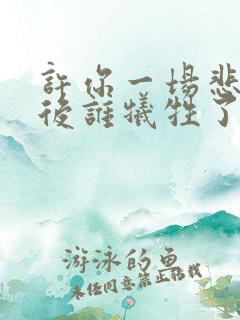 許你一場悲
後誰犧牲了
游泳的魚
未經同意禁止轉載